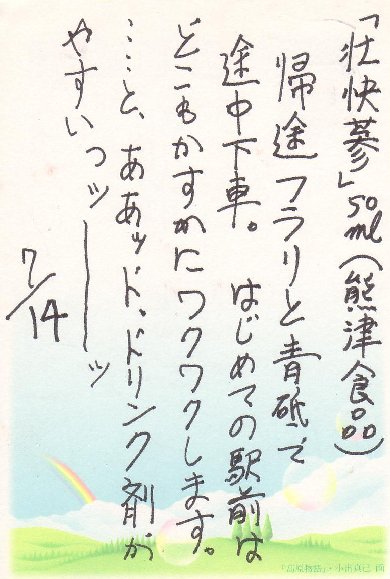 「壮快蔘」50ml(熊津食品)
帰途フラリと青砥で
途中下車。はじめての駅前は
どこもかすかにワクワクします。
……と、ああッド、ドリンク剤が
やすいっッ――ッ
7/14
「高原物語」・小出真己 画